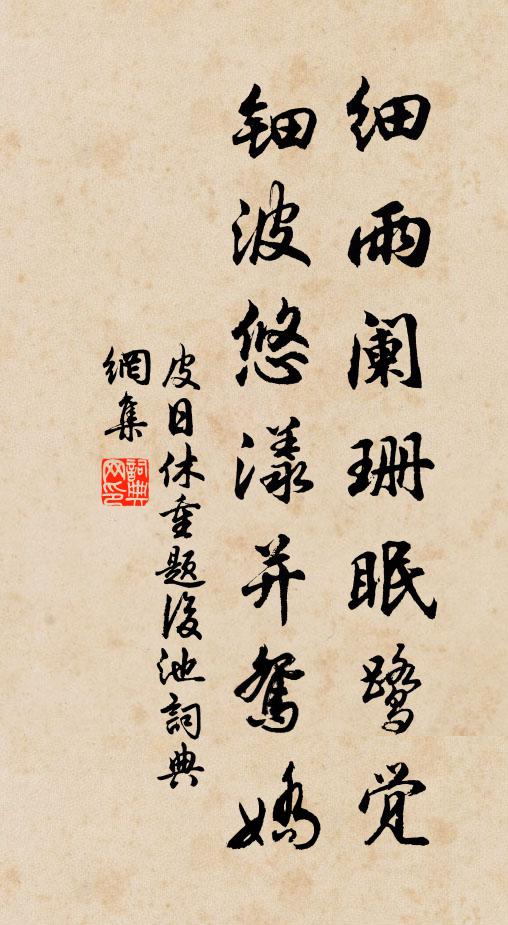 细雨阑珊眠鹭觉
钿波悠漾并鸳娇
皮日休重题後池詞典
網集
詞典网印